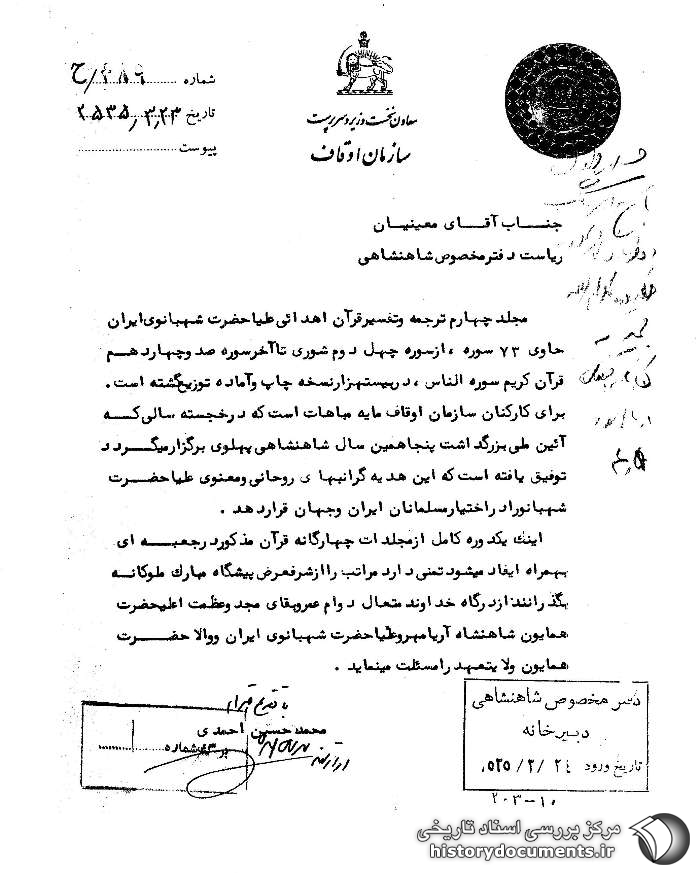 شماره
تاریخ ۲۵۳۵/۳/۲۳
پیوست
معاون نخست وزیر و سرپرست
سازمان اوقاف
جناب آقای معینیان
ریاست دفتر مخصوص شاهنشاهی
مجلد چهارم ترجمه وتفسیر قرآن اهدائی علیاحضرت شهبانوی ایران
حاوی ۷۳ سوره ، ازسوره چهل ودوم شوری تاآخرسوره صدوچهاردهم
قرآن کریم سوره الناس ، دربیستهزارنسخه چاپ وآماده توزیع گشته است .
برای کارکنان سازمان اوقاف مایه مباهات است که درخجسته سالی که
آئین ملی بزرگداشت پنجاهمین سال شاهنشاهی پهلوی برگزارمیگردد
توفیق یافته است که این هدیه گرانبهای روحانی ومعنوی علیاحضرت
شهبانورادراختیارمسلمانان ایران وجهان قراردهد .
اینك یکدوره کامل ازمجلدات چهارگانه قرآن مذکوردرجعبه ای
بهمراه ایفاد میشود تمنی دارد مراتب را ازشرفعرض پیشگاه مبارك ملوکانه
بگذرانند ازدرگاه خداوند متعال دوام عمروبقای مجد وعظمت اعلیحضرت
همایون شاهنشاه آریامهروعلیاحضرت شهبانوی ایران ووالاحضرت
همایون ولایتعهد رامسئلت مینماید .
با تقدیم احترام
محمد حسین احمدی
شماره
دفتر مخصوص شاهنشاهی
دبیرخانه
تاریخ ورود
۲۰۳-۱۰
مرکز بررسی اسناد تاریخی
historydocuments.ir